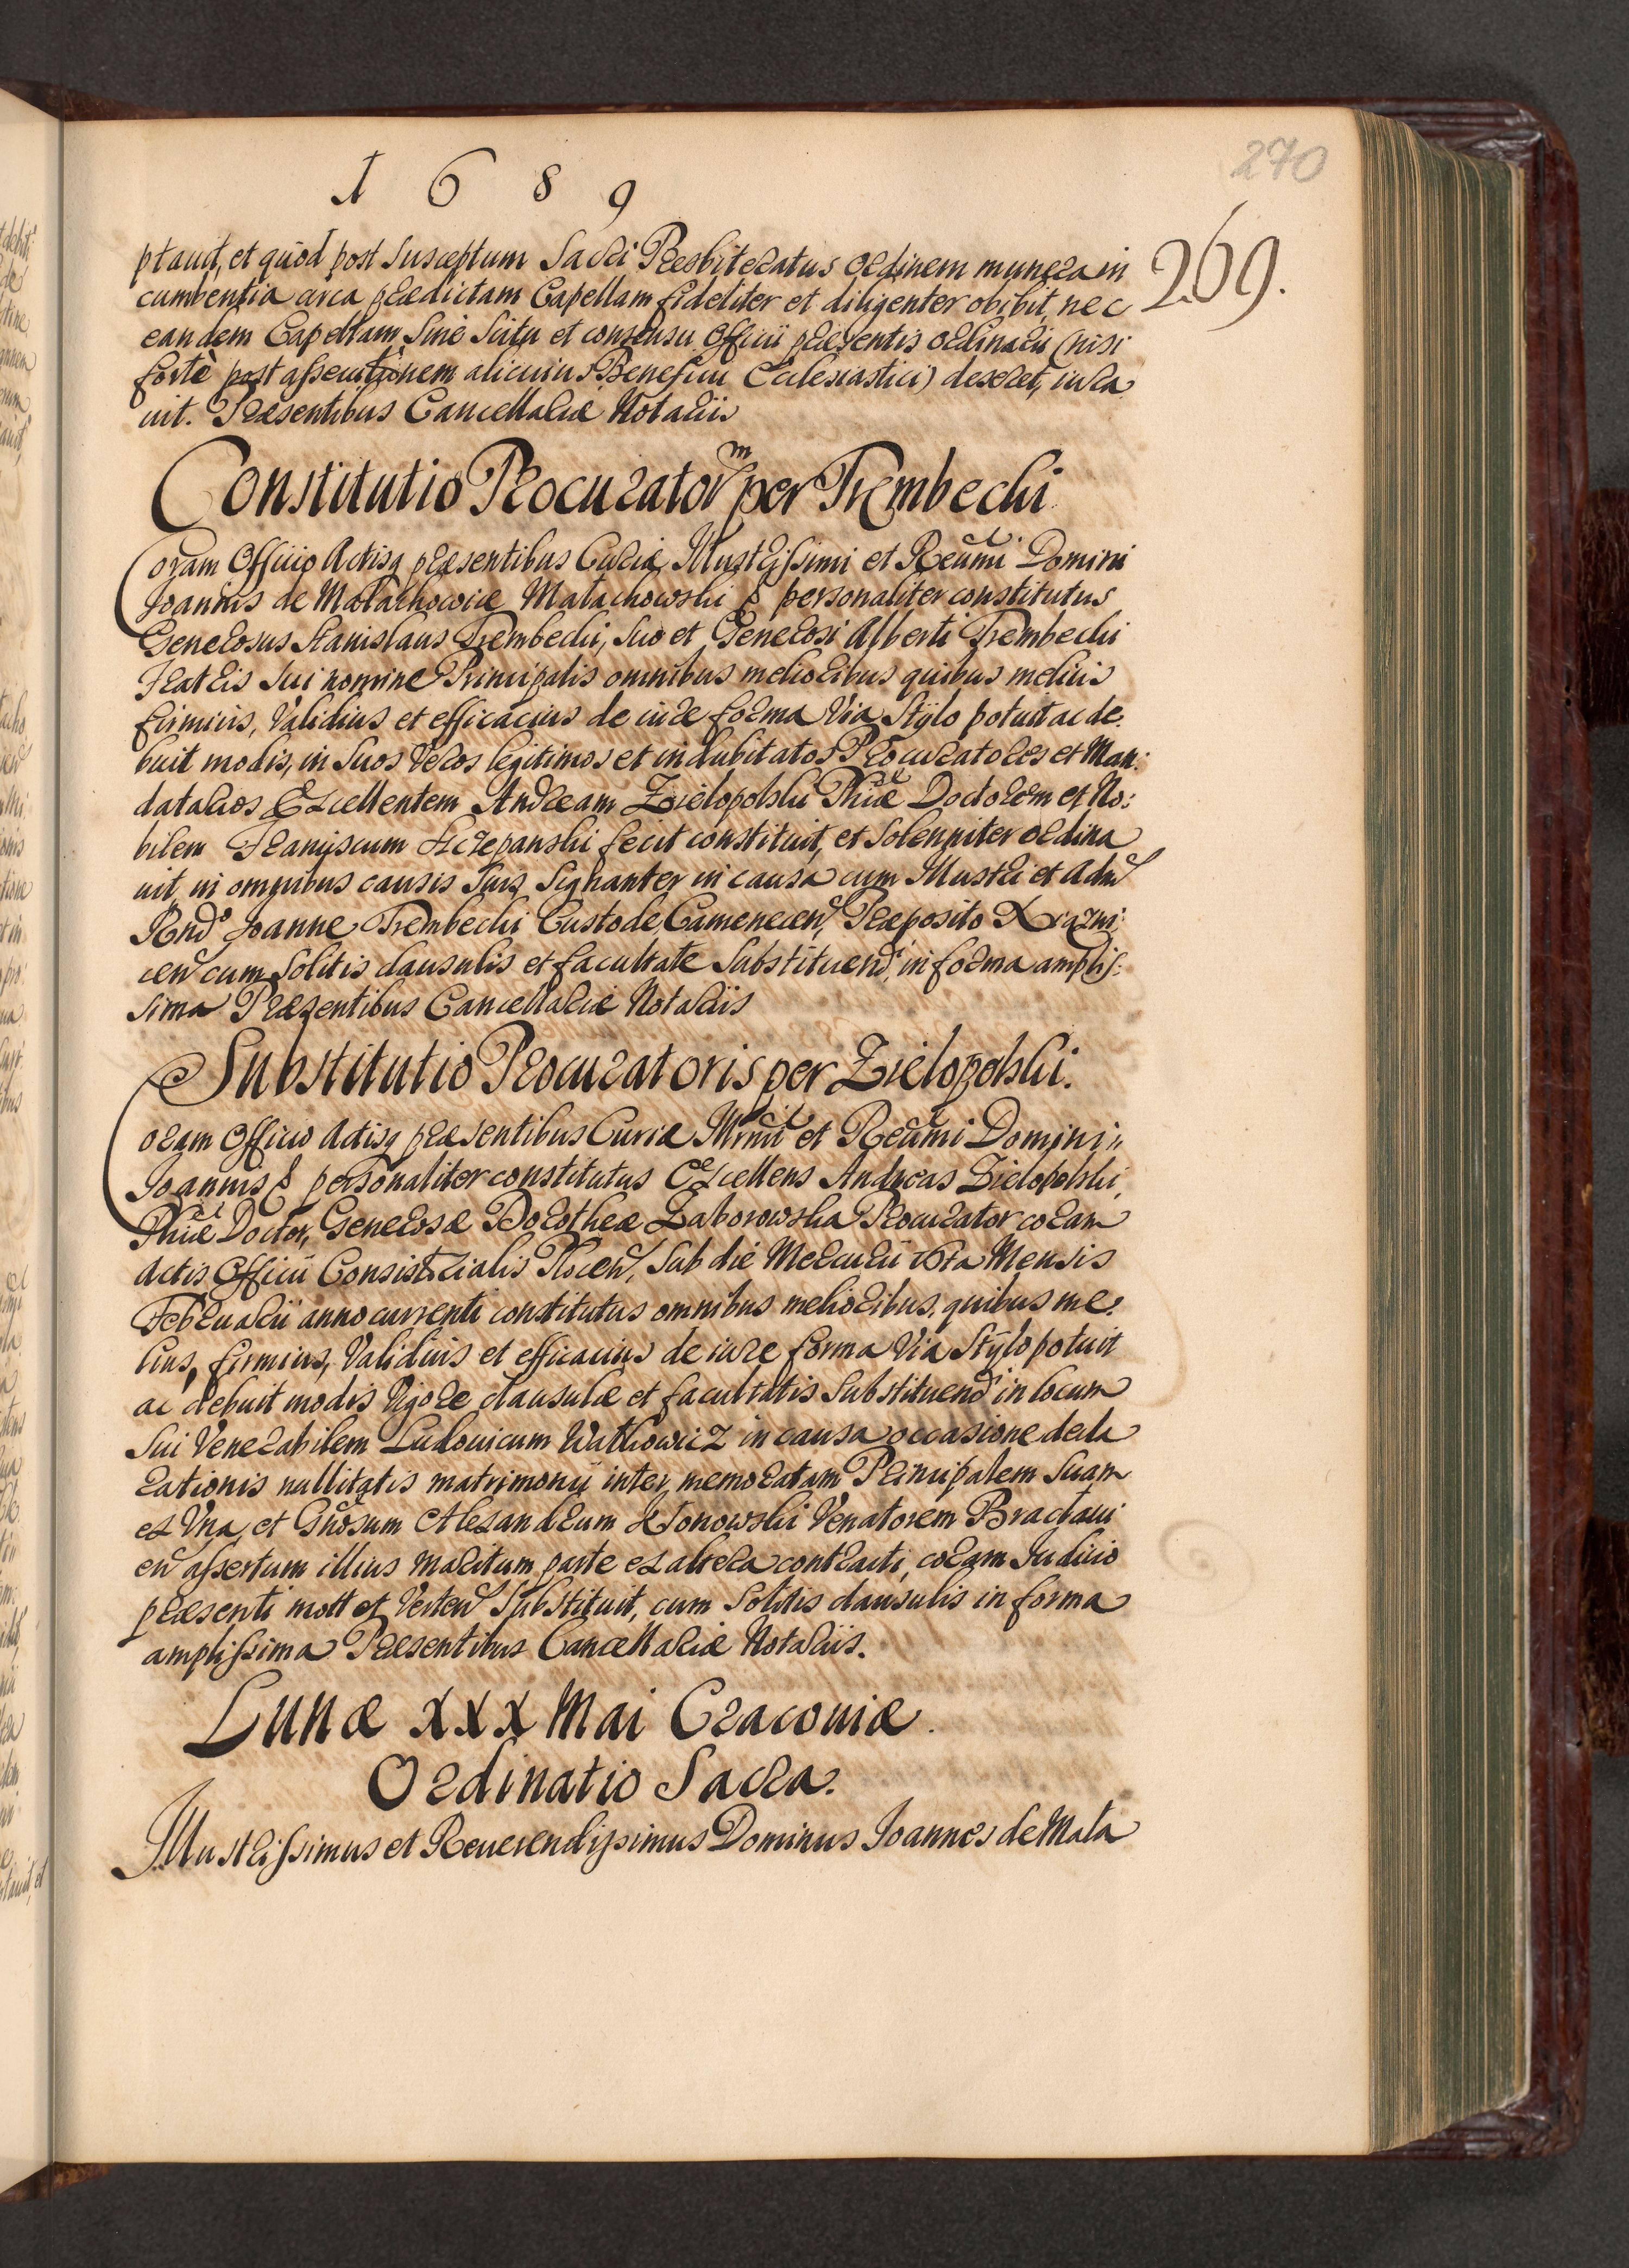 1689
270
269.
ptauit, et quod post susceptum Sacri Presbiteratus ordinem munera in
cumbentia circa praedictam Capellam fideliter et diligenter obibit, nec
eandem Capellam sine scitu et consensu Officii praesentis ordinarii (nisi
fortè post assecutionem alicuius Beneficii Ecclesiastici) deseret, iura
uit. Praesentibus Cancellariae Notariis
Constitutio Procurator̃m per Trembecki.
Coram Officio Actisq praesentibus Curiae Illustrissimi et Reũmi Domini
Joannis de Małachowice Małachowski personaliter constitutus
Generosus Stanislaus Trembecki, suo et Generosi Alberti Trembecki
Fratris sui nomine Principalis omnibus melioribus quibus melius
firmius, Validius et efficacius de iure forma Via Stÿlo potuit ac de:
buit modis, in suos Veros legitimos et indubitatos Procuratores et Man:
datarios Excellentem Andream Zielopolski Phiae Doctorem et No:
bilem Franciscum Sczepanski fecit constituit, et solenniter ordina
uit, in omnibus causis suis signanter in causa cum Illustri et Adm
Rndo Joanne Trembecki Custode Camenecen, Praeposito
cen cum solitis clausulis et facultate substituend in forma amplis:
sima Praesentibus Cancellariae Notariis
Substitutio Procuratoris per Zielopolski.
Coram Officio Actisq praesentibus Curiae Illrmi et Reũmi Domini
Joannis personaliter constitutus Excellens Andreas Zielopolski,
Phiae Doctor, Generosae Dorotheae Zaborowska Procurator coram
Actis Officii Consistorialis Plocen, sub die Mercurii Mensis
Februarii anno currenti constitutus omnibus melioribus, quibus me:
lius, firmius, Validius et efficacius de iure forma Via Stÿlo potuit
ac debuit modis Vigore clausulae et facultatis substituend in locum
sui Venerabilem Ludouicum Wutkowicz in causa occasione decla
rationis nullitatis matrimonÿ inter memoratam Principalem suam
ex Vna, et Gnosum Alexandrum Venatorem Braclaui
en assertum illius Maritum parte ex altera contracti, coram Iudicio
praesenti mott et Verten substituit, cum solitis clausulis in forma
amplissima Praesentibus Cancellariae Notariis.
Lunae XXX Mai Cracouiae.
Ordinatio Sacra.
Illustrissimus et Reuerendissimus Dominus Joannes de Mała